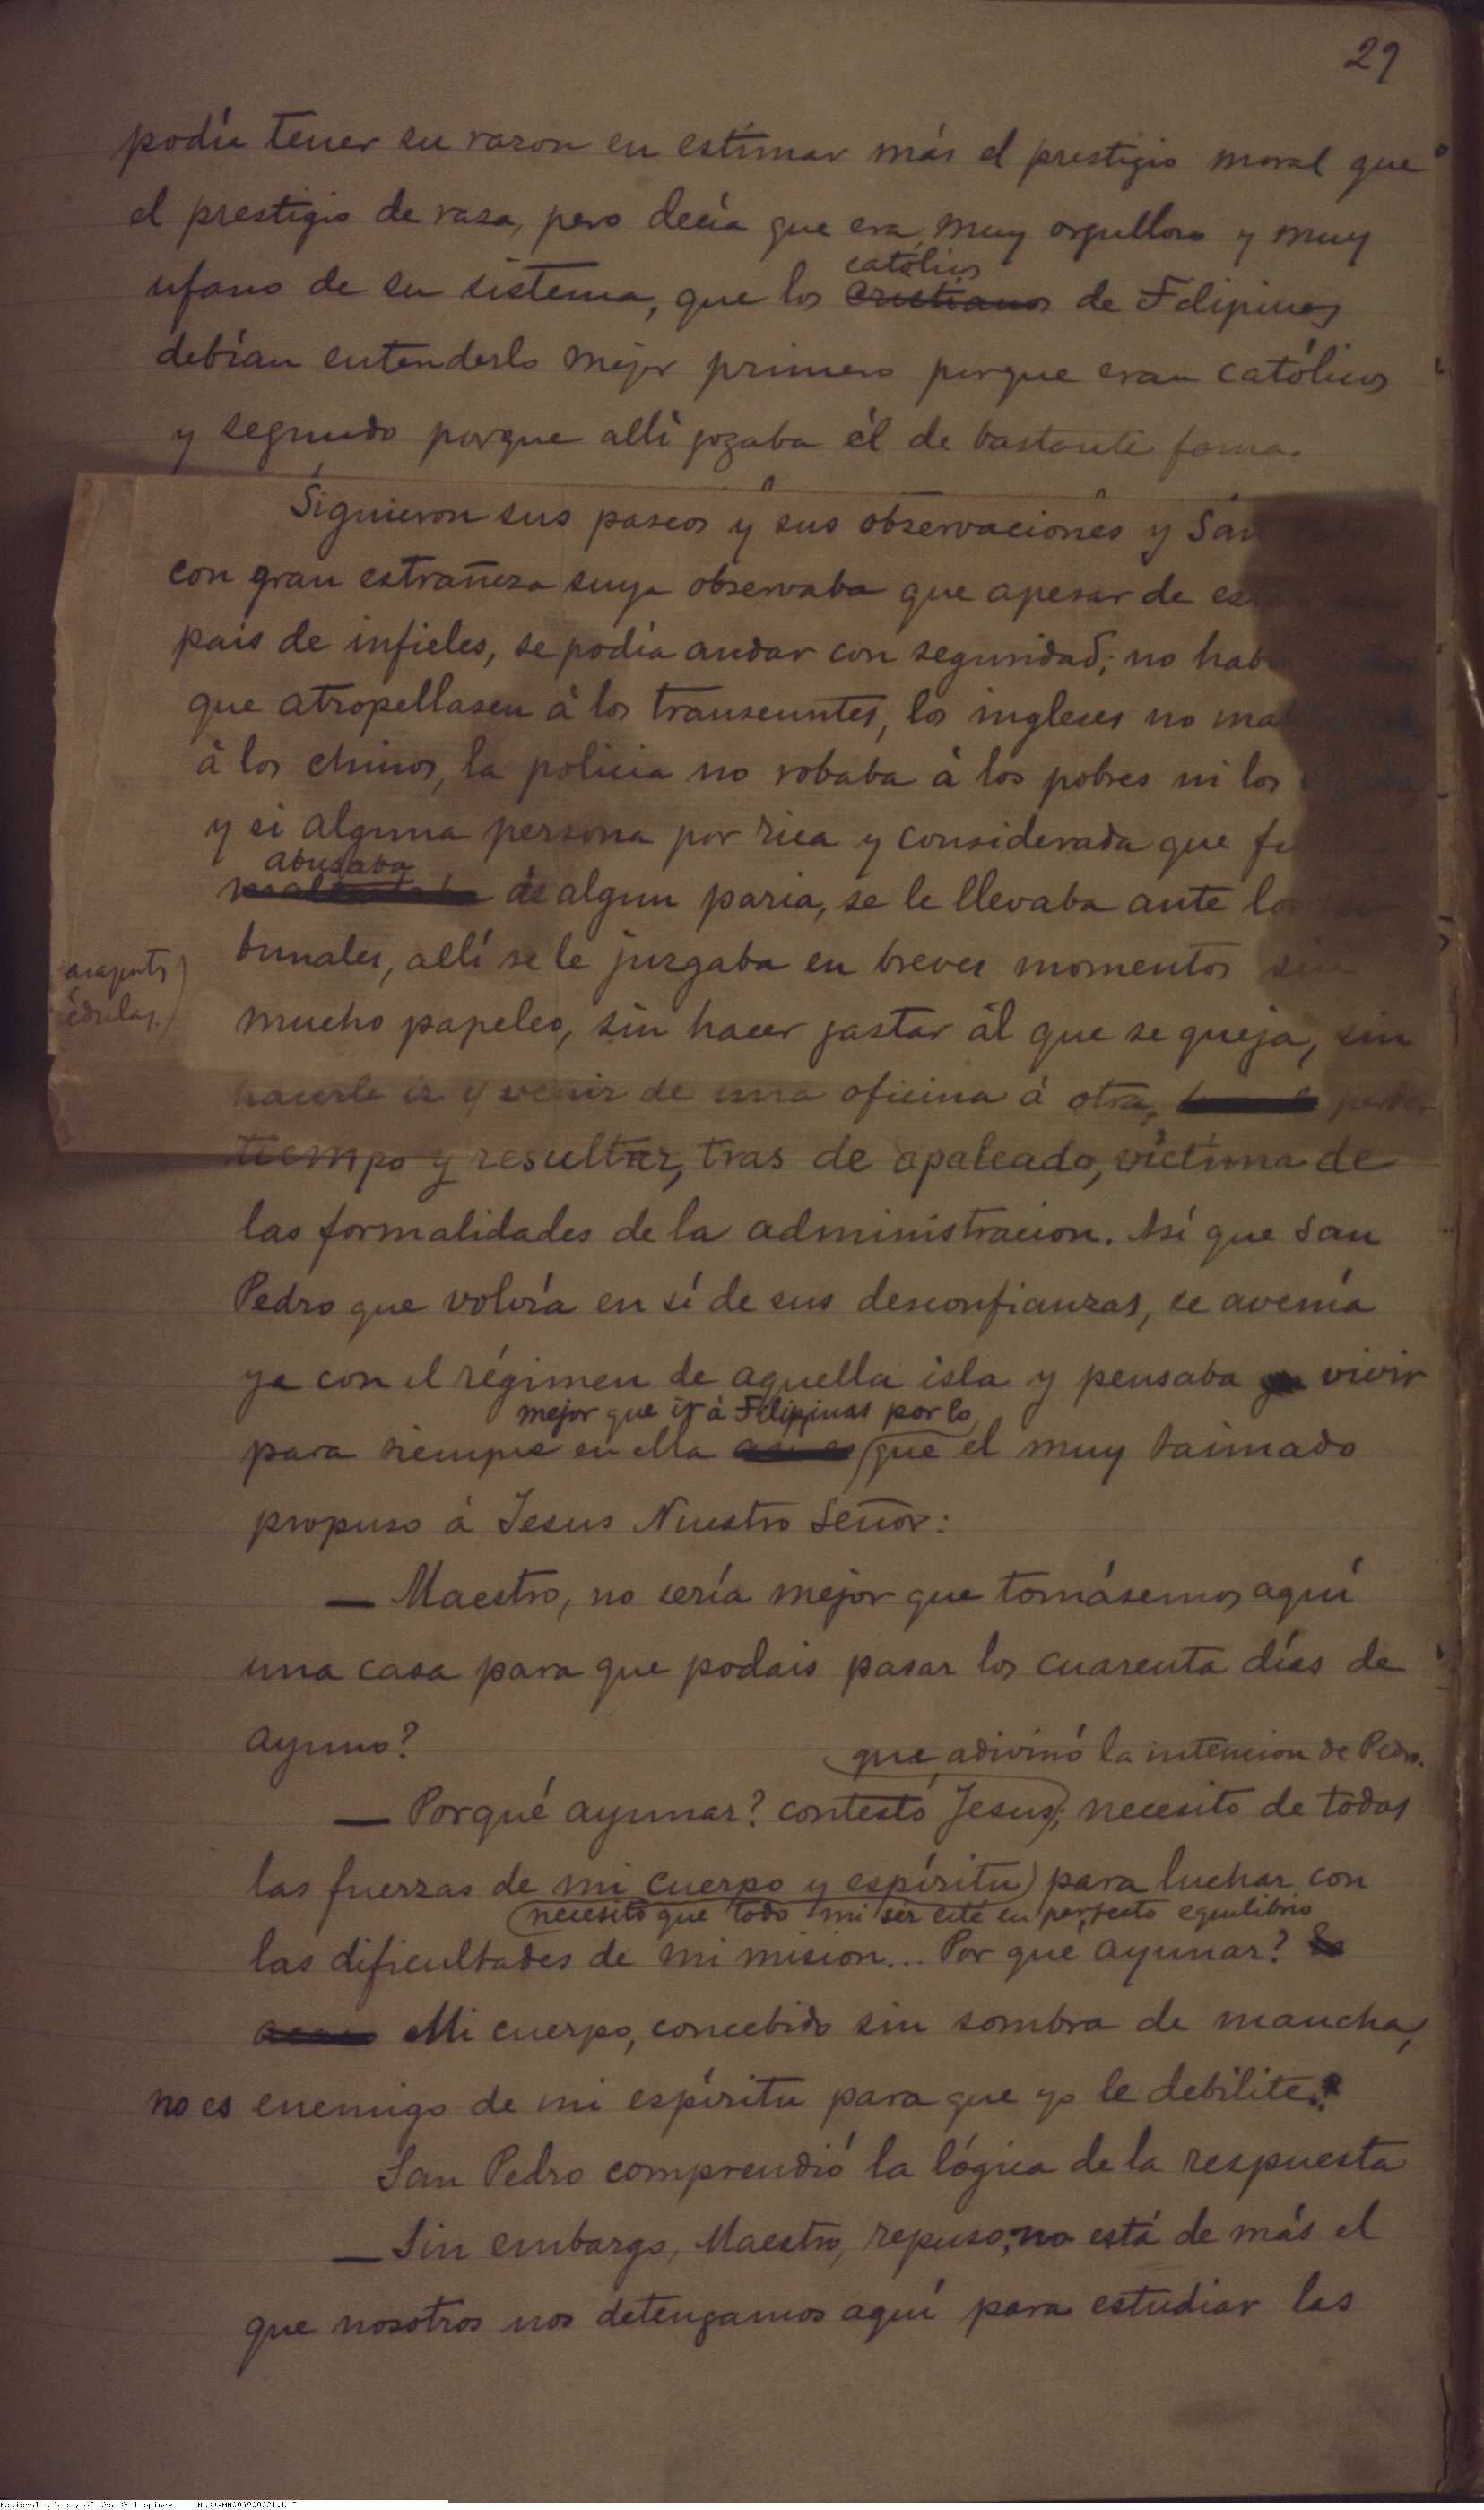 29
podía tener su razon en estimar más el prestigio moral que
el prestigio de raza, pero decía que era muy orgulloso y muy
católicos
ufano de su sistema, que los cristianos de Filipinas
debían entenderlo mejor primero porque eran católicos
y segundo porque allí gozaba él de bastante fama.
Siguieron sus paseos y sus observaciones y San
con gran estrañeza suya observaba que apesar de
pais de infieles, se podía andar con seguridad; no
que atropellasen á los transeuntes, los ingleses no
á los chinos, la policia no robaba á los pobres ni los
y si alguna persona por rica y considerada que
abusaba
de algun paria, se le llevaba ante
bunales, allí se le juzgaba en breves momentos sin
mucho papeleo, sin hacer gastar ál que se queja, sin
hacerle ir y venir de una oficina á otra, perder
tiempo y resultar, tras de apaleado, víctima de
las formalidades de la administracion. Así que San
Pedro que volvía en sí de sus desconfianzas, se avenía
ya con el régimen de aquella isla y pensaba vivir
mejor que ir á Filipinas por lo
para siempre en ella que el muy taimado
propuso á Jesus Nuestro Señor:
— Maestro, no sería mejor que tomásemos aquí
una casa para que podais pasar los cuarenta días de
ayuno?
que adivinó la intencion de Pedro.
— Porqué ayunar? contestó Jesus; necesito de todas
las fuerzas de mi cuerpo y espíritu para luchar con
necesito que todo mi sér esté en perfecto equilibrio
las dificultades de mi mision... Por qué ayunar?
Mi cuerpo, concebido sin sombra de mancha,
no es enemigo de mi espíritu para que yo le debilite.
San Pedro comprendió la lógica de la respuesta
— Sin embargo, Maestro, repuso, no está de más el
que nosotros nos detengamos aquí para estudiar las